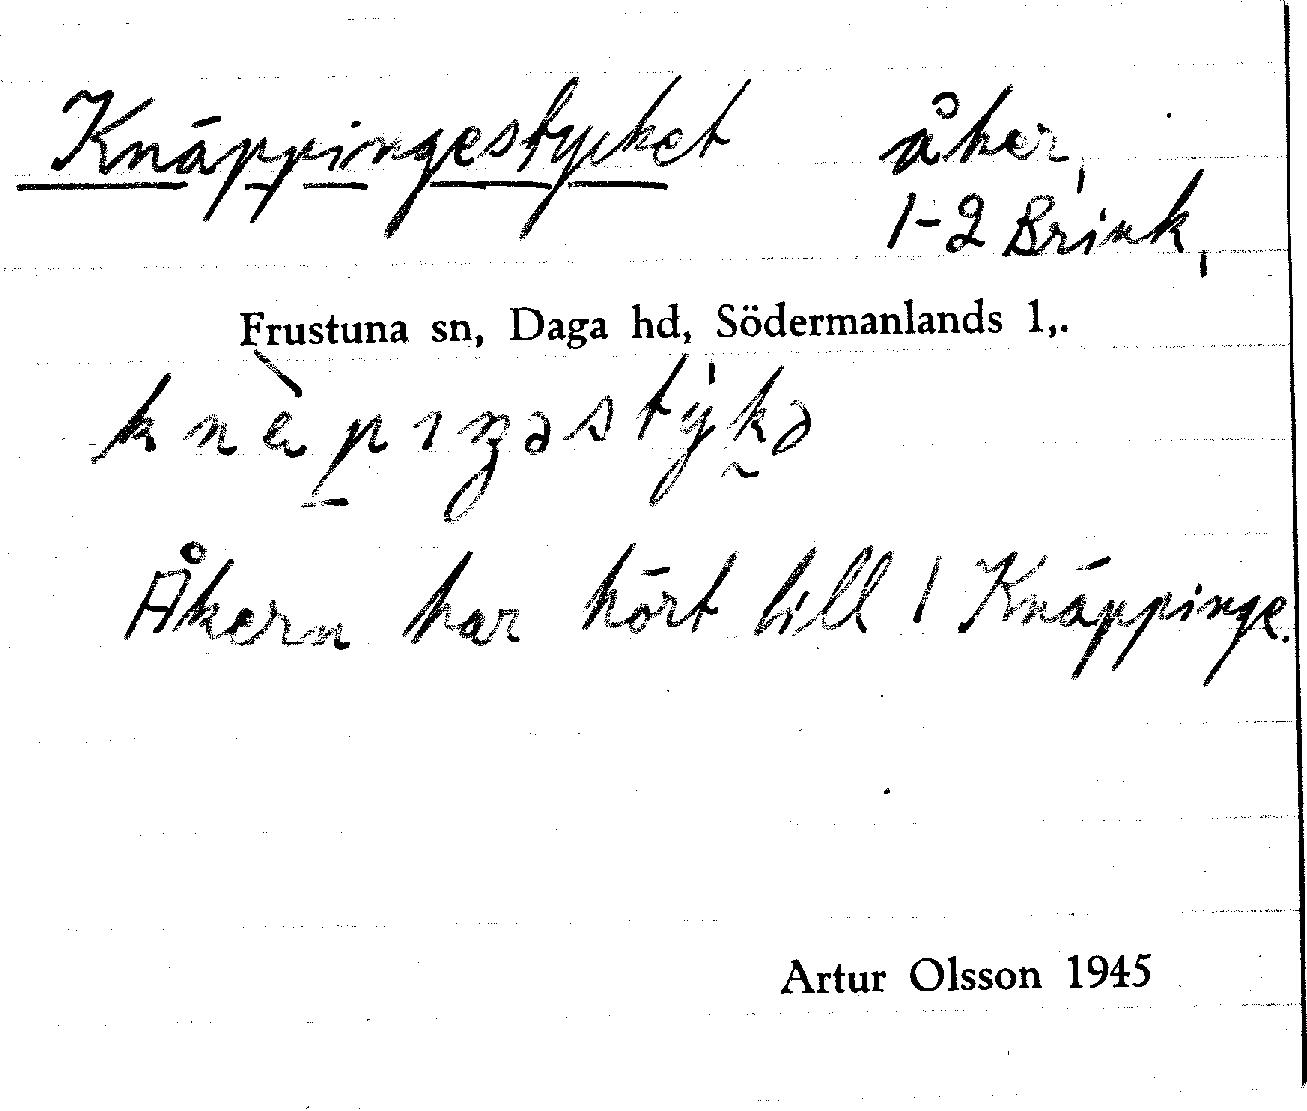 Knäppingestycket åker,
1-2 Brink,
Frustuna sn, Daga hd, Södermanlands l,.
knèpıŋəstýkə
Åkern har hört till 1 Knäppinge.
Artur Olsson 1945